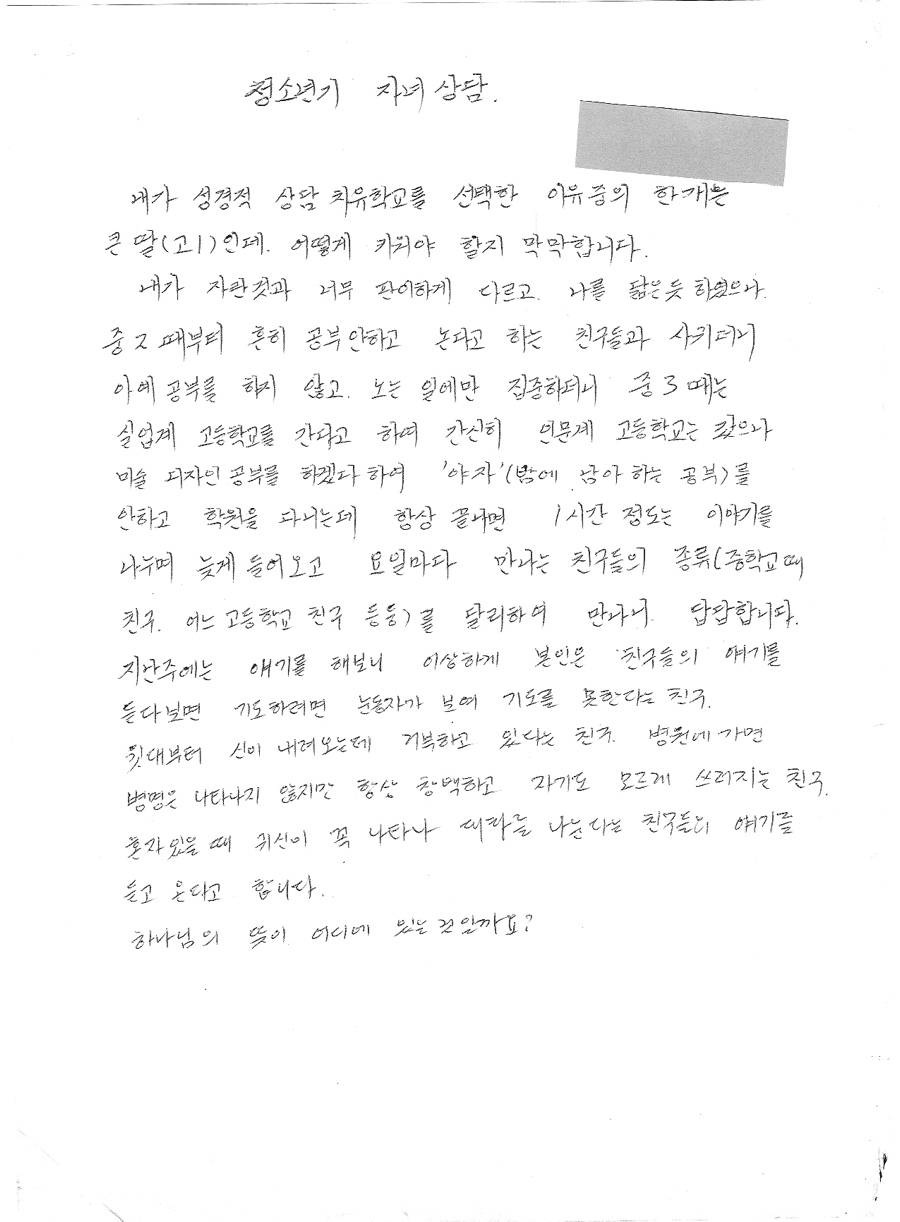 청소년기 자녀 상담.
내가 성경적 상담 치유학교를 선택한 이유중의 한개는
큰 딸(고1)인데. 어떻게 키워야 할지 막막합니다.
내가 자란것과 너무 판이하게 다르고. 나를 닮은듯 하였으나.
중2때부터 흔히 공부안하고 논다고 하는 친구들과 사귀더니
아예 공부를 하지 않고. 노는 일에만 집중하더니 중3때는
실업계 고등학교를 간다고 하여 간신히 인문계 고등학교는 갔으나
미술 디자인 공부를 하겠다하여 '야자'(밤에 남아 하는 공부)를
안하고 학원을 다니는데 항상 끝나면 1시간 정도는 이야기를
나누며 늦게 들어오고 요일마다 만나는 친구들의 종류(중학교때
친구. 어느 고등학교 친구 등등)를 달리하여 만나니. 답답합니다.
지난주에는 얘기를 해보니 이상하게 본인은 친구들의 얘기를
듣다보면 기도하려면 눈동자가 보여 기도를 못한다는 친구.
윗대부터 신이 내려오는데 거부하고 있다는 친구. 병원에 가면
병명은 나타나지 않지만 항상 창백하고 자기도 모르게 쓰러지는 친구.
혼자 있을 때 귀신이 꼭 나타나 대화를 나눈다는 친구들의 얘기를
듣고 온다고 합니다.
하나님의 뜻이 어디에 있는 것일까요?